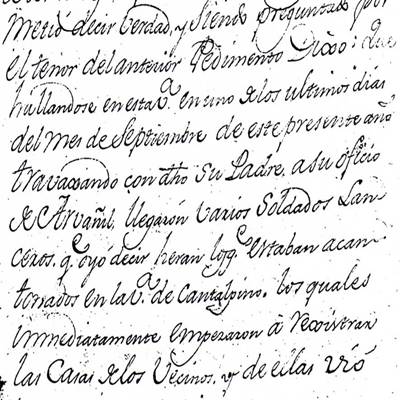 metió decir verdad, y siendo preguntado por
el tenor del anterior Pedimento Dixo: que
hallandose en esta v.ª en uno de los ultimos dias
del mes de Septiembre de este presente año
travaxando con dho su Padre, a su oficio
de Arvañil, llegaron varios Soldados Lan-
ceros, q.e oyó decir heran los q.e estaban acan-
tonados en la v.ª de Cantalpino. los quales
immediatamente empezaron à rexistrar
las Casas de los Vecinos, y de ellas vió